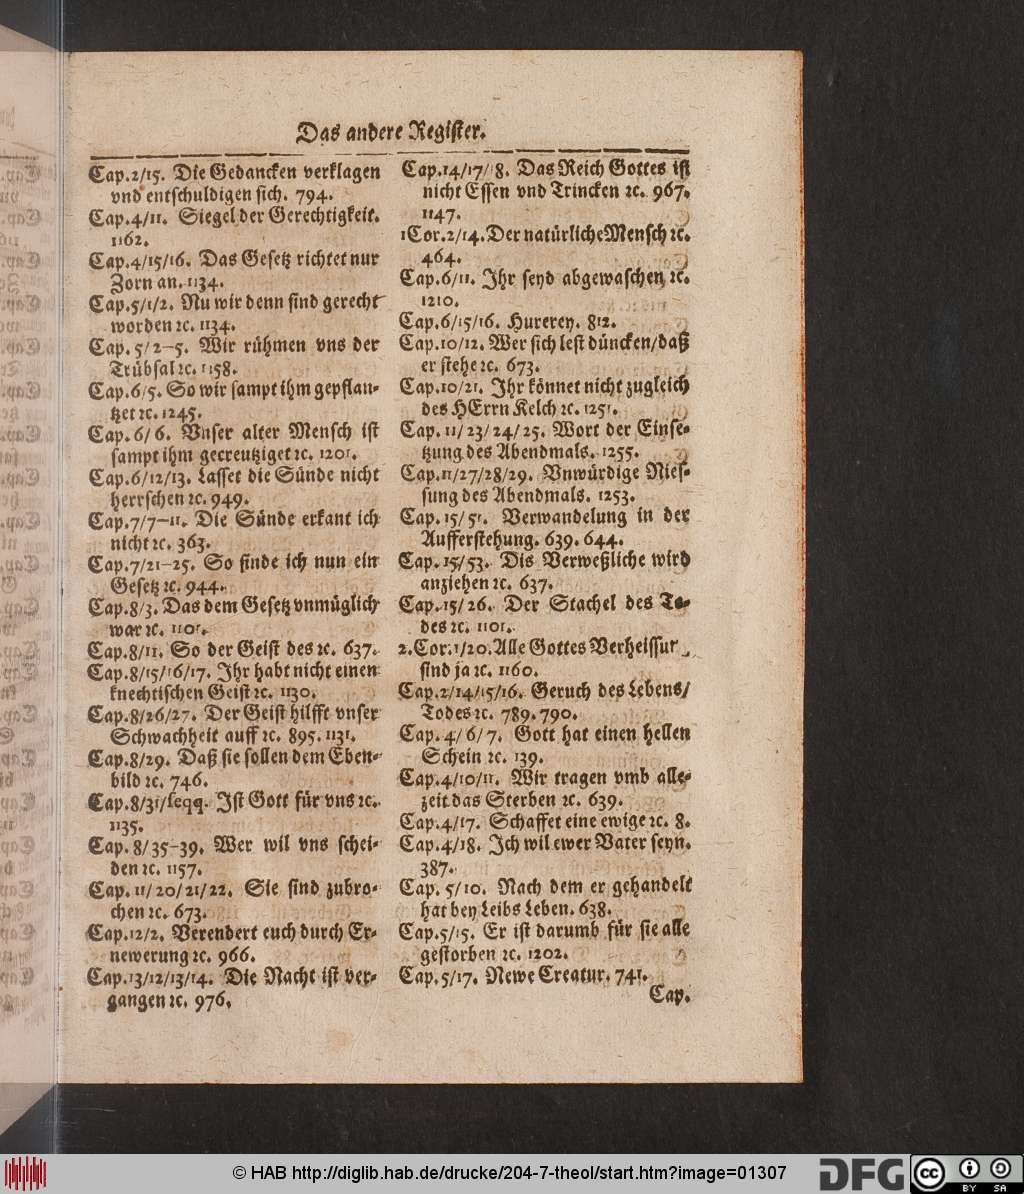 Das andere Register.
Cap.2/15. Die Gedancken verklagen
vnd entschuldigen sich. 794.
Cap.4/11. Siegel der Gerechtigkeit.
1162.
Cap.4/15/16. Das Gesetz richtet nur
Zorn an. 1134.
Cap.5/1/2. Nu wir denn sind gerecht
worden ꝛc. 1134.
Cap. 5/2-5. Wir rühmen vns der
Trübsal ꝛc. 1158.
Cap.6/5. So wir sampt ihm gepflan-
tzet ꝛc. 1245.
Cap. 6/6. Vnser alter Mensch ist
sampt ihm gecreutziget ꝛc. 1201.
Cap.6/12/13. Lasset die Sünde nicht
herrschen ꝛc. 949.
Cap.7/7-11. Die Sünde erkant ich
nicht ꝛc. 363.
Cap.7/21-25. So finde ich nun ein
Gesetz ꝛc. 944.
Cap.8/3. Das dem Gesetz vnmüglich
war ꝛc. 1101.
Cap.8/11. So der Geist des ꝛc. 637.
Cap.8/15/16/17. Ihr habt nicht einen
knechtischen Geist ꝛc. 1130.
Cap.8/26/27. Der Geist hilfft vnser
Schwachheit auff ꝛc. 895. 1131.
Cap.8/29. Daß sie sollen dem Eben-
bild ꝛc. 746.
Cap.8/31/seqq. Ist Gott für vns ꝛc.
1135.
Cap. 8/35-39. Wer wil vns schei-
den ꝛc. 1157.
Cap. 11/20/21/22. Sie sind zubro-
chen ꝛc. 673.
Cap.12/2. Verendert euch durch Er-
newerung ꝛc. 966.
Cap.13/12/13/14. Die Nacht ist ver-
gangen ꝛc. 976.
Cap.14/17/18. Das Reich Gottes ist
nicht Essen vnd Trincken ꝛc. 967.
1147.
1 Cor.2/14. Der natürliche Mensch ꝛc.
464.
Cap.6/11. Ihr seyd abgewaschen ꝛc.
1210.
Cap.6/15/16. Hurerey. 812.
Cap.10/12. Wer sich lest düncken/daß
er stehe ꝛc. 673.
Cap.10/21. Ihr könnet nicht zugleich
des HErrn Kelch ꝛc. 1251.
Cap. 11/23/24/25. Wort der Einse-
tzung des Abendmals. 1255.
Cap.11/27/28/29. Vnwürdige Nies-
sung des Abendmals. 1253.
Cap. 15/51. Verwandelung in der
Aufferstehung. 639. 644.
Cap. 15/53. Dis Verweßliche wird
anziehen ꝛc. 637.
Cap.15/26. Der Stachel des To-
des ꝛc. 1101.
2.Cor.1/20. Alle Gottes Verheissun-
sind ja ꝛc. 1160.
Cap.2/14/15/16. Geruch des Lebens/
Todes ꝛc. 789. 790.
Cap. 4/6/7. Gott hat einen hellen
Schein ꝛc. 139.
Cap.4/10/11. Wir tragen vmb alle-
zeit das Sterben ꝛc. 639.
Cap.4/17. Schaffet eine ewige ꝛc. 8.
Cap.4/18. Ich wil ewer Vater seyn.
387.
Cap. 5/10. Nach dem er gehandelt
hat bey Leibs Leben. 638.
Cap.5/15. Er ist darumb für sie alle
gestorben ꝛc. 1202.
Cap.5/17. Newe Creatur. 741.
Cap.
© HAB http://diglib.hab.de/drucke/204-7-theol/start.htm?image=01307
DFG
cc BY SA